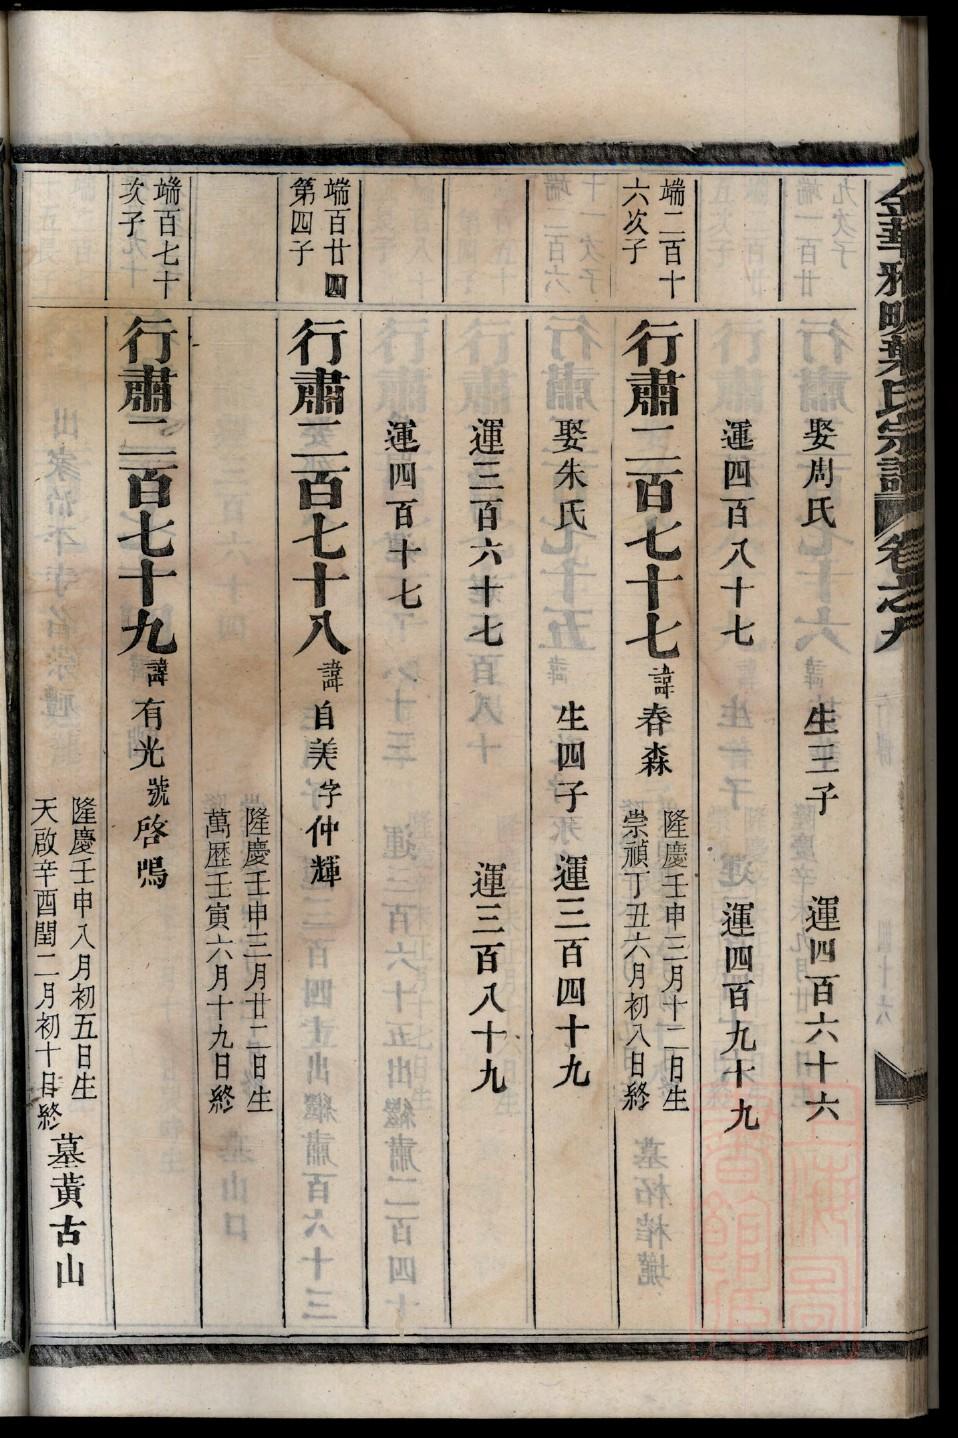 金華雅畈葉氏宗譜 卷之九
娶周氏 生三子 運四百六十六
運四百八十七 運四百九十九
端二百十六次子
行肅二百七十七 諱春森 隆慶壬申三月十二日生 崇禎丁丑六月初八日終
娶朱氏 生四子 運三百四十九
運三百六十七 運三百八十九
運四百十七
端百廿四第四子
行肅二百七十八 諱自美字仲輝
隆慶壬申三月廿二日生
萬歷壬寅六月十九日終
端百七十次子
行肅二百七十九 諱有光號啓鳴
隆慶壬申八月初五日生
天啟辛酉閏二月初十日終 墓黃古山